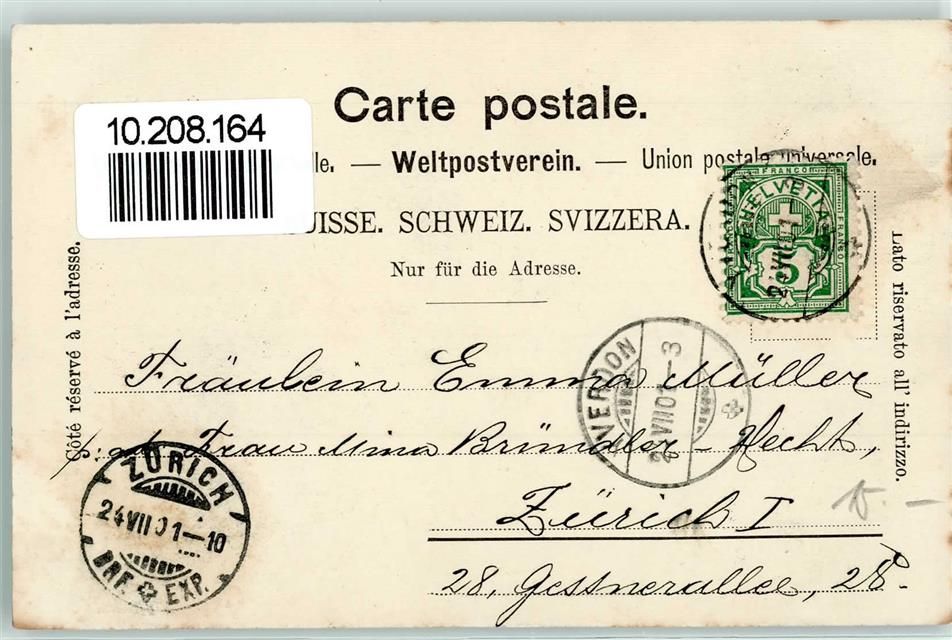 10.208.164
Carte postale.
lle. — Weltpostverein. — Union postale universale.
UISSE. SCHWEIZ. SVIZZERA.
Nur für die Adresse.
Côté réservé à l'adresse.
Lato riservato all' indirizzo.
FRANCO
HELVETIA
FRANCO
5
24 VII 01
YVERDON
VII 01 – 3
Fräulein Emma Müller
Frau Mina Bründler-Hecht,
Zürich I
28, Gessnerallee, 28.
15. –
ZÜRICH
24 VII 01 – 10
BRF. EXP.